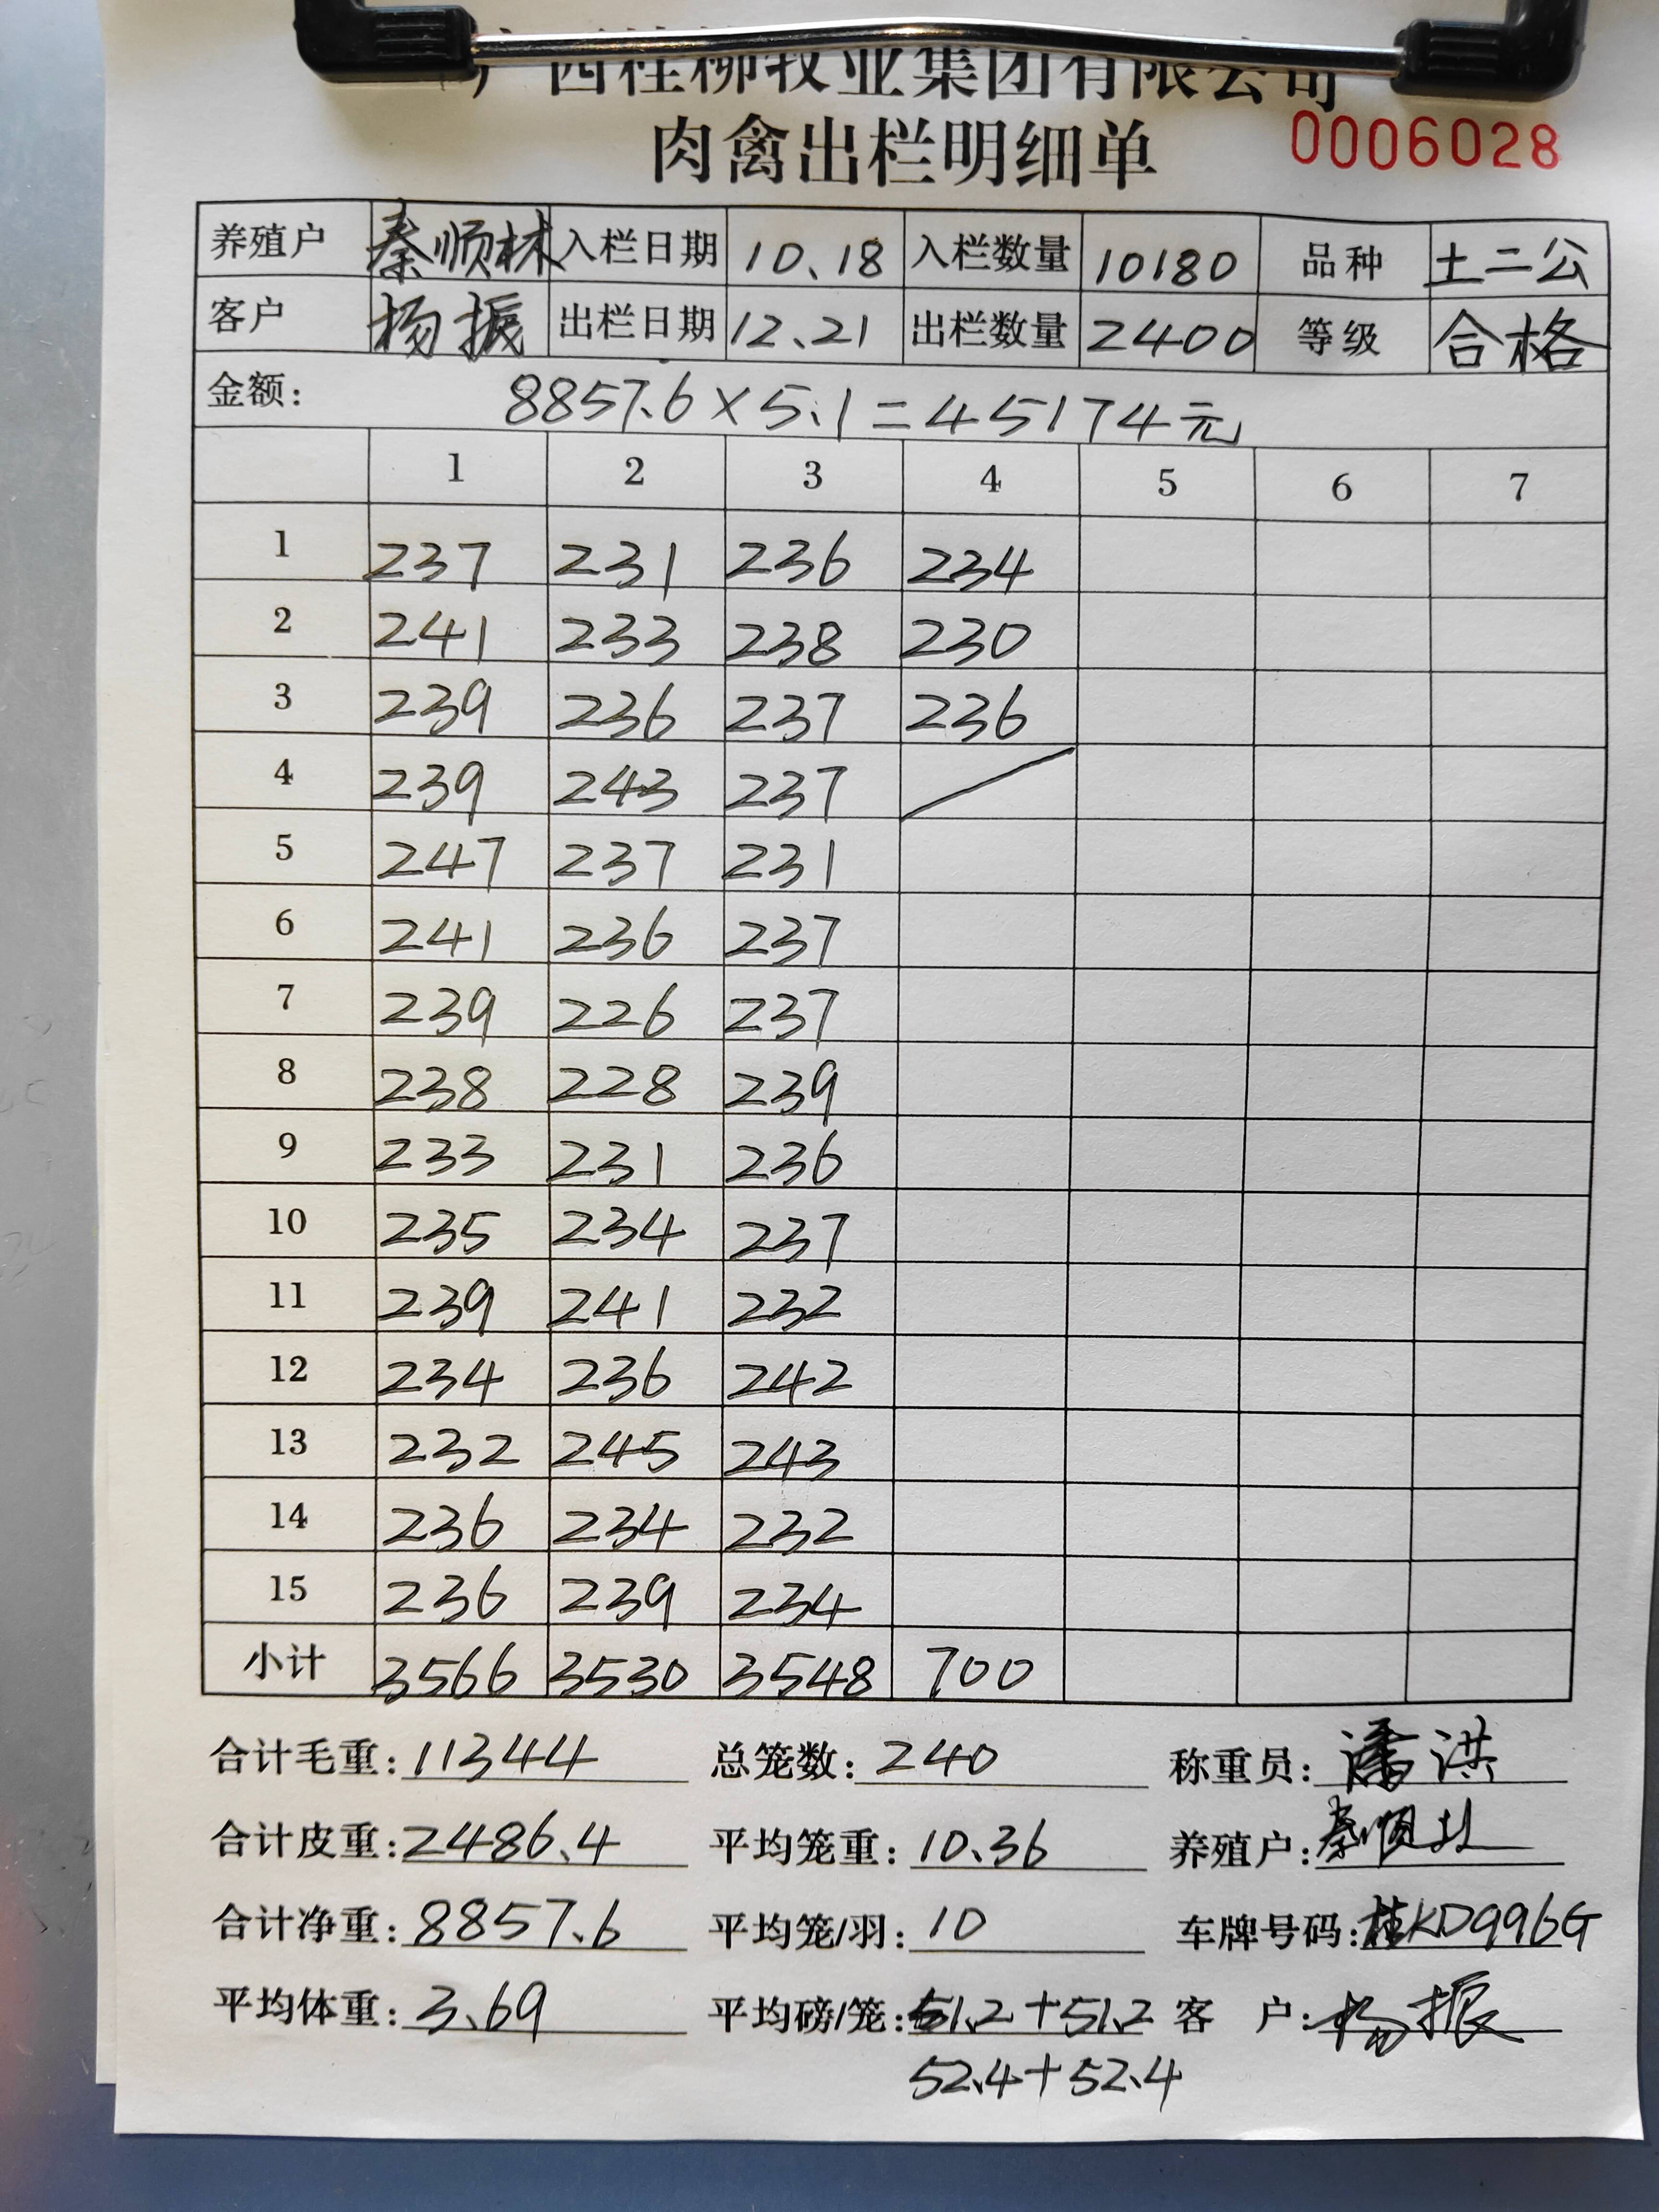 广西桂柳牧业集团有限公司
肉禽出栏明细单 0006028
养殖户 秦顺林 入栏日期 10.18 入栏数量 10180 品种 土二公
客户 杨振 出栏日期 12.21 出栏数量 2400 等级 合格
金额: 8857.6×5.1=45174元
1 2 3 4 5 6 7
1 237 231 236 234
2 241 233 238 230
3 239 236 237 236
4 239 243 237
5 247 237 231
6 241 236 237
7 239 226 237
8 238 228 239
9 233 231 236
10 235 234 237
11 239 241 232
12 234 236 242
13 232 245 243
14 236 234 232
15 236 239 234
小计 3566 3530 3548 700
合计毛重:11344 总笼数:240 称重员:潘洪
合计皮重:2486.4 平均笼重:10.36 养殖户:秦顺林
合计净重:8857.6 平均笼/羽:10 车牌号码:桂KD996G
平均体重:3.69 平均磅/笼:51.2+51.2 客户:杨振
52.4+52.4